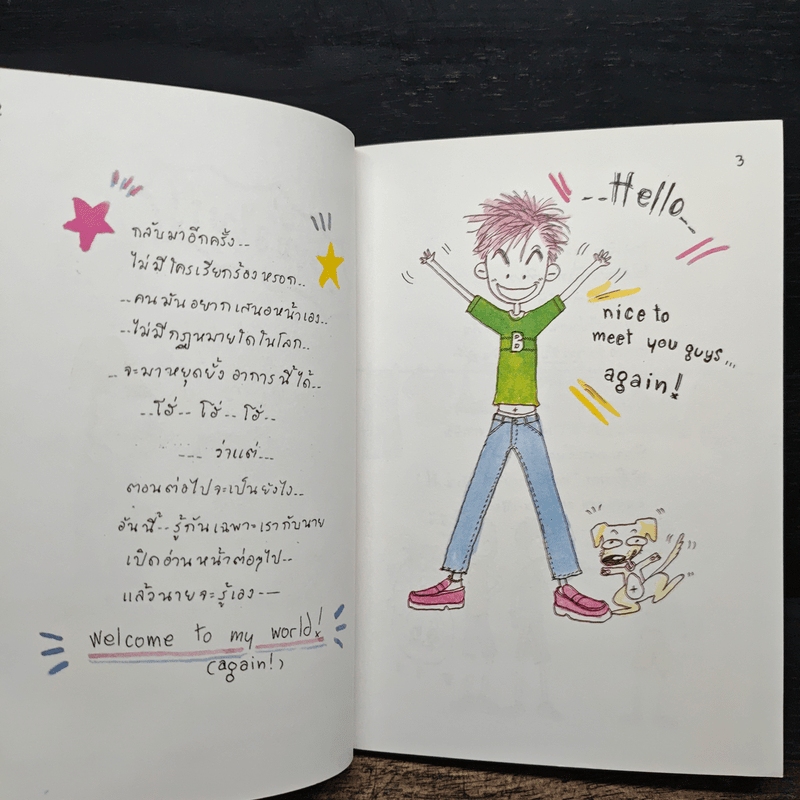 กลับมาอีกครั้ง..
ไม่มีใครเรียกร้องหรอก..
..คนมันอยากเสนอหน้าเอง..
..ไม่มีกฎหมายใดในโลก..
..จะมาหยุดยั้ง อาการนี้ได้..
..โฮ่-- โฮ่-- โฮ่--
---- ว่าแต่---
ตอนต่อไปจะเป็นยังไง--
อันนี้-- รู้กันเฉพาะเรากับนาย
เปิดอ่านหน้าต่อๆไป--
แล้วนายจะรู้เอง---
Welcome to my world!
(again!)
3
--Hello--
B
nice to
meet you guys...
again!